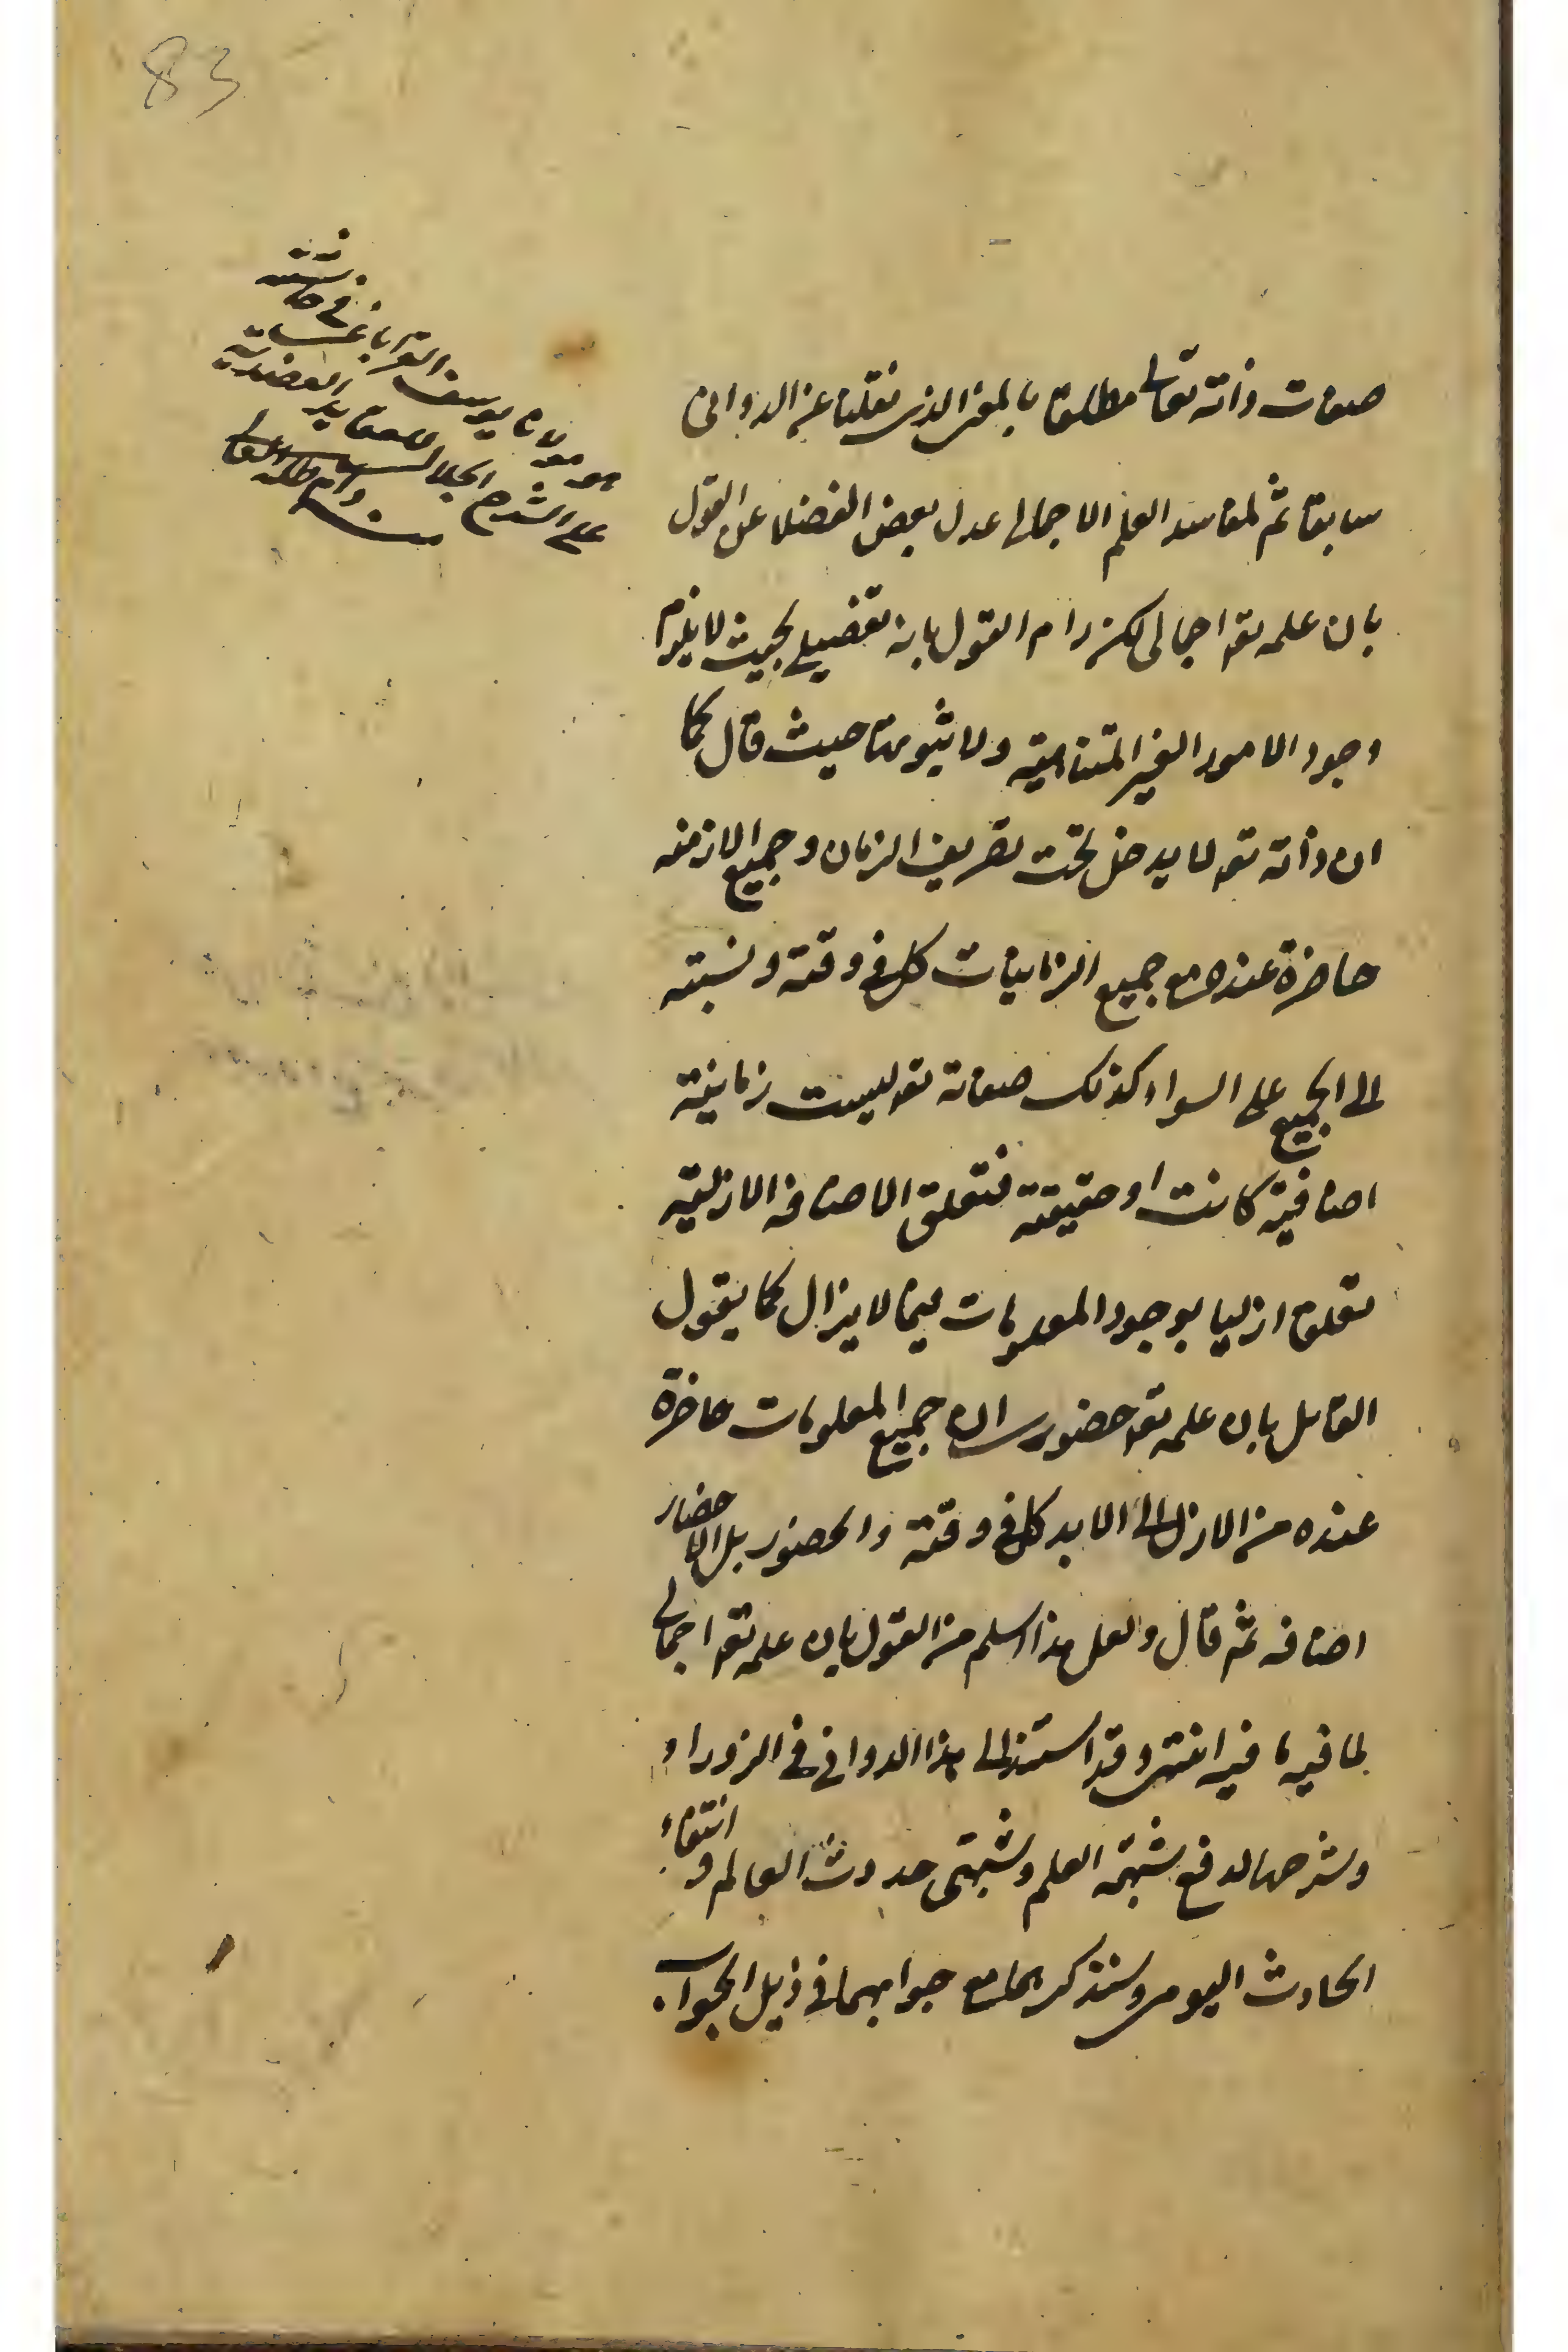 83
صفات ذاته تعالى مطلقا بالمعنى الذى نقلنا عن الدوانى
سابقا ثم لمفاسد العلم الاجمالى عدل بعض الفضلا عن القول
بان علمه تعـ اجمالى لكن رام القول بانه تفصيلى بحيث لا يلزم
وجود الامور الغير المتناهية ولا ثبوتها حيث قال كما
ان ذاته تعـ لا يدخل تحت تصريف الزمان وجميع الازمنه
حاضرة عنده مع جميع الزمانيات كل فى وقته ونسبته
الى الجميع على السواء كذلك صفاته تعـ ليست زمانية
اضافية كانت او حقيقية فتعلق الاضافه الازلية
تعلقا ازليا بوجود المعلومات فيما لا يزال كما يقول
القائل بان علمه تعـ حضورى ان جميع المعلومات حاضرة
عنده من الازل الى الابد كل فى وقته والحضور بل الاحضار
اضافه ثم قال ولعل هذا اسلم من القول بان علمه تعـ اجمالى
لما فيه ما فيه انتهى وقد استند الى هذا الدوانى فى الزوراء
وشرحها لدفع شبهة العلم وشبهتى حدوث العالم وانتفاء
الحادث اليومى وسنذكرهما مع جوابهما فى ذيل الجواب
هو مولانا يوسف القراباغى فى حاشيته
على الشرح الجلالى للعقايد العضدية
منه دام ظله العالى